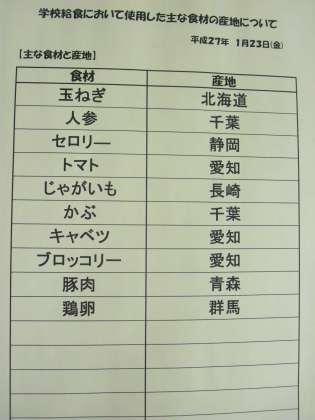 学校給食において使用した主な食材の産地について
平成27年 1月23日(金)
【主な食材と産地】
食材 産地
玉ねぎ 北海道
人参 千葉
セロリー 静岡
トマト 愛知
じゃがいも 長崎
かぶ 千葉
キャベツ 愛知
ブロッコリー 愛知
豚肉 青森
鶏卵 群馬